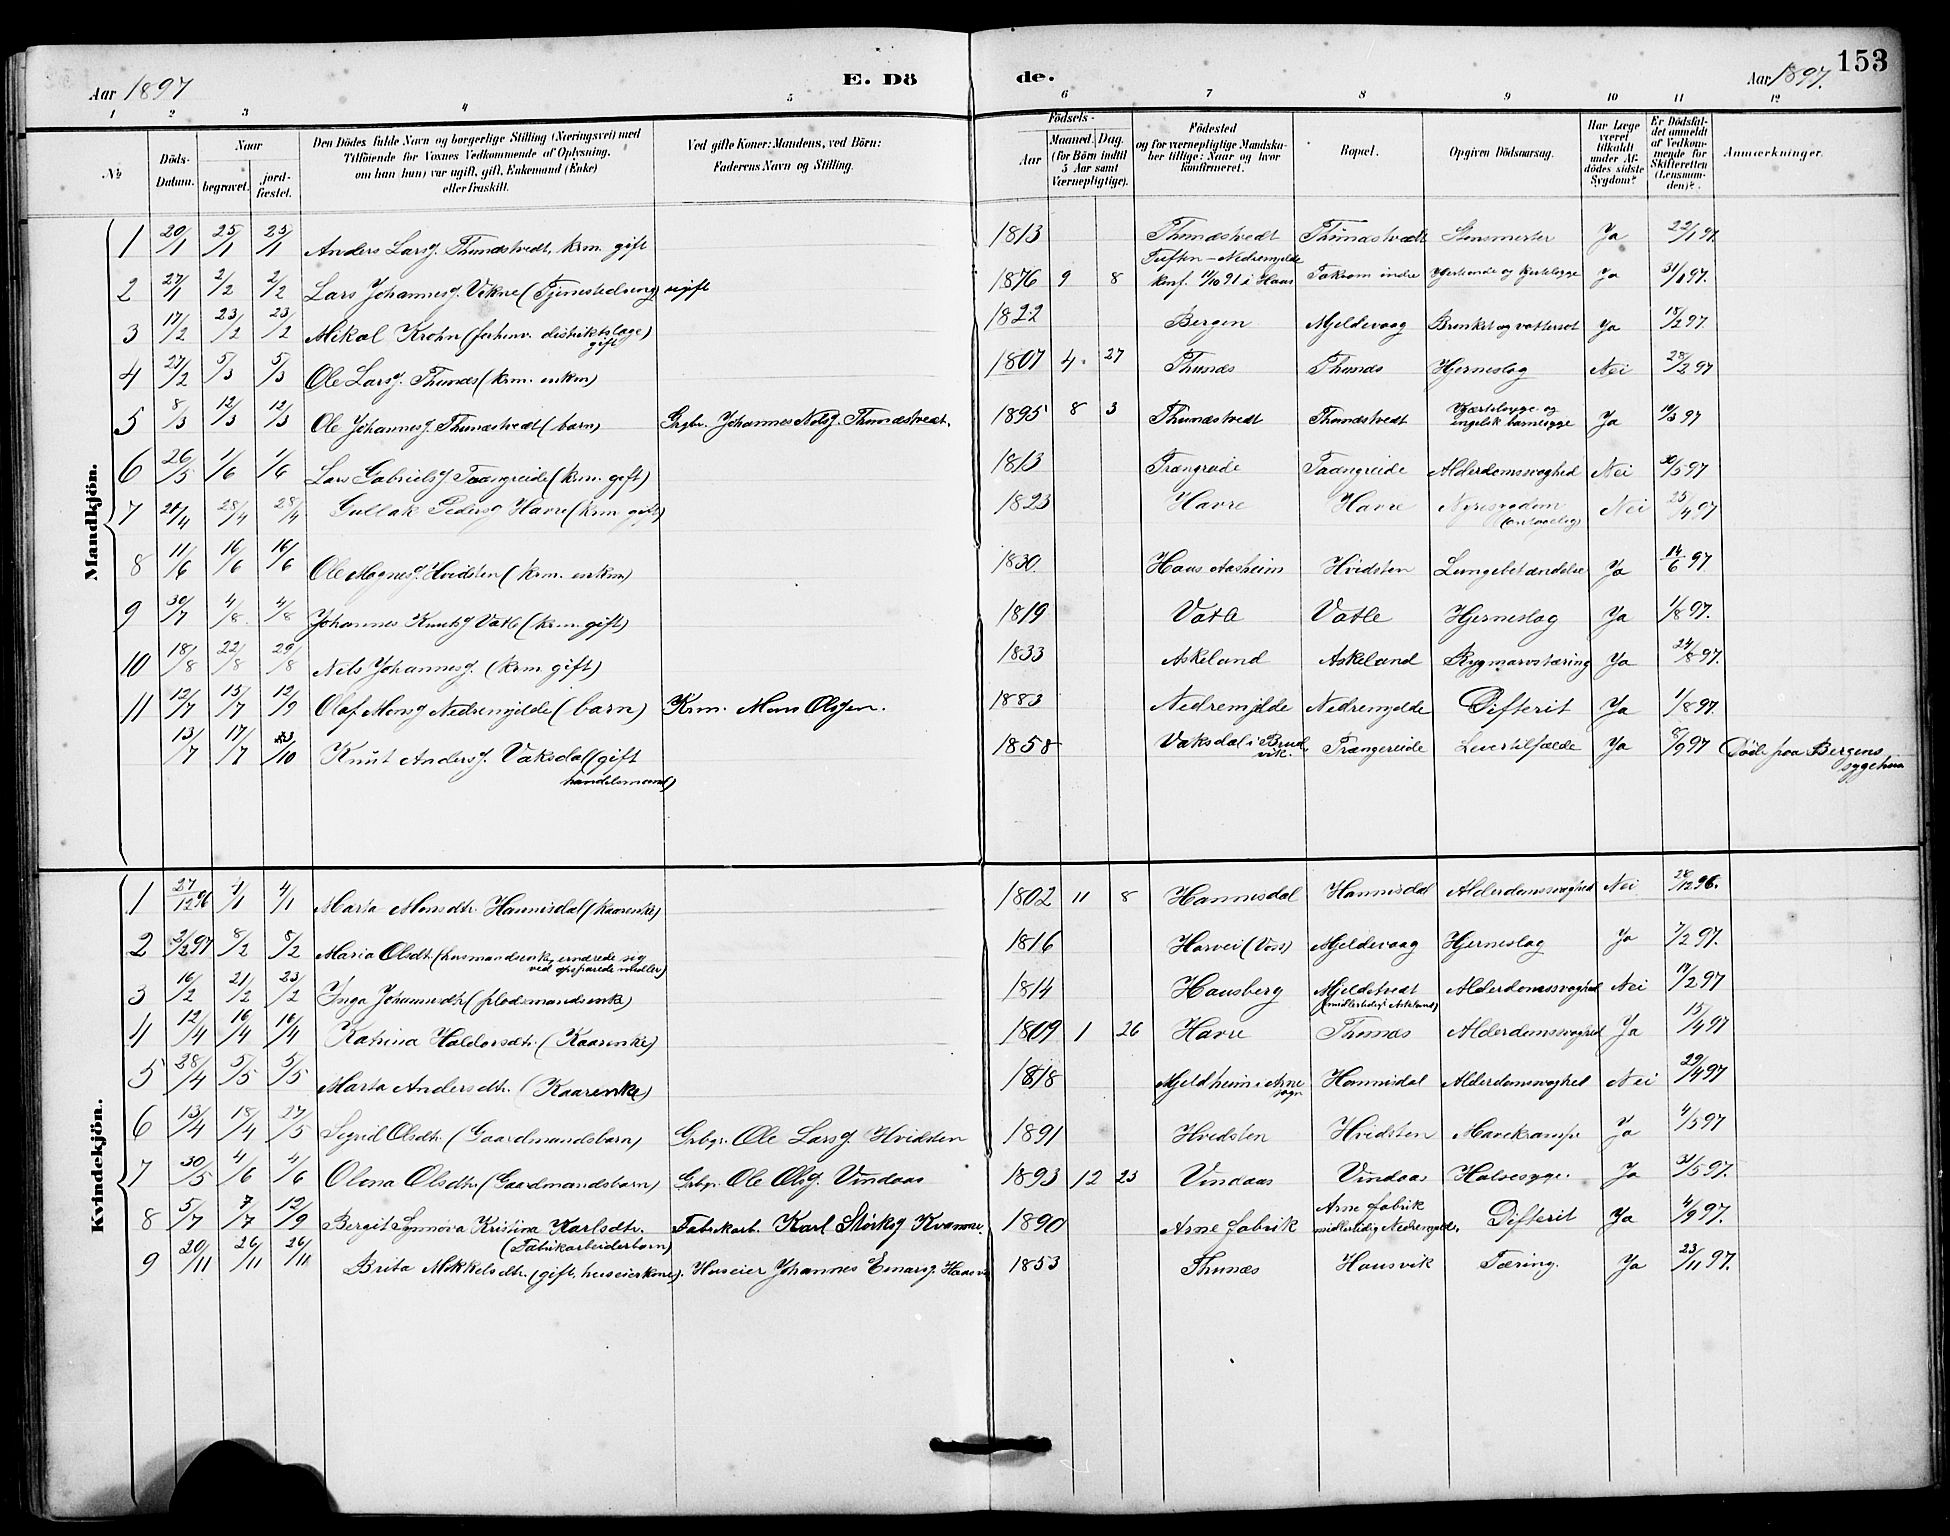 153
Aar 1897
E. Dö
de.
Aar 1897.
1 2 3 4 5 6 7 8 9 10 11 12
№
Döds-Datum.
Naar
begravet.
jord-fæstet.
Den Dödes fulde Navn og borgerlige Stilling (Næringsvei) med
Tilföiende for Voxnes Vedkommende af Oplysning,
om han (hun) var ugift, gift, Enkemand (Enke)
eller fraskilt.
Ved gifte Koner: Mandens, ved Börn:
Faderens Navn og Stilling.
Födsels-
Aar
Maaned. Dag.
(for Börn indtil
5 Aar samt
Værnepligtige).
Födested
og for værnepligtige Mandska-
ber tillige: Naar og hvor
konfirmeret.
Bopæl.
Opgiven Dödsaarsag.
Har Læge
været
tilkaldt
under Af-
dödes sidste
Sygdom?
Er Dödsfal-
det anmeldt
af Vedkom-
mende for
Skifteretten
(Lensman-
den)?
Anmærkninger.
Mandkjön.
1 20/1 25/1 23/1 Anders Larsg. Thunæstvedt, krm. gift 1813 Thunæstvedt Thunæstvedt Ja 22/1 97.
Tuften - Nedremjelde
2 27/1 2/2 2/2 Lars Johannesg. Vikne (Tjenestedreng) ugift 1876 9 8 konf. 11/10 91 i Haus Takvam indre Ja 31/1 97.
3 17/2 23/2 23/2 Mikal Krohn (forhenv. distriktslæge) gift 1822 Bergen Mjeldevaag Bronkit og vattersot Ja 18/2 97
4 27/2 5/3 5/3 Ole Larsg. Thunæs (krm. enkm) 1807 4. 27 Thunæs Thunæs Hjerneslag Nei 28/2 97
5 8/3 12/3 12/3 Ole Johannesg. Thunæstvedt (barn) Grbr. Johannes Nilsg. Thunæstvedt. 1895 8 3 Thunæstvedt Thunæstvedt engelsk barnesyge Ja 10/3 97
6 26/5 1/6 1/6 Lars Gabrielsg Taangreide (krm. gift) 1813 Trængreide Taangreide Alderdomssvaghed Nei 30/5 97
7 21/4 28/4 28/4 Gullak Pedersg Havre (krm gift) 1823 Havre Havre Nyresygdom (antagelig) Nei 25/4 97
8 11/6 16/6 16/6 Ole Magnesg. Hvidsten (krm. enkm) 1830. Haus Aasheim Hvidsten Lungebetændelse Ja 14/6 97
9 30/7 4/8 4/8 Johannes Knutsg Vatle (krm. gift) 1819 Vatle Vatle Hjerneslag Ja 1/8 97.
10 18/8 22/8 29/8 Nils Johannesg. (krm gift) 1833 Askeland Askeland Rygmarvstæring Ja 24/8 97.
11 12/7 15/7 12/9 Olaf Monsg Nedremjelde (barn) Krm. Mons Olsgen. 1883 Nedremjelde Nedremjelde Difterit Ja 1/8 97.
13/7 17/7 3/10 Knut Andersg. Vaksdal (gift handelsmand) 1858 Vaksdal i Bruvik. Trængereide Levertilfælde Ja 8/9 97 Död paa Bergens sygehus
Kvindekjön.
1 27/12 96 4/1 4/1 Marta Monsdtr. Hannisdal (kaarenke) 1802 11 8 Hannisdal Hannisdal Alderdomssvaghed Nei 28/12 96.
2 2/2 97 8/2 8/2 Maria Olsdtr. (husmandsenke, ernærede sig ved opsparede midler) 1816 Horvei (Voss) Mjeldevaag Hjerneslag Ja 7/2 97.
3 16/2 21/2 23/2 Inga Johannesdtr. (pladsmandsenke) 1814 Hausberg Mjeldetvedt (midlertidig i Askeland) Alderdomssvaghed Nei 17/2 97
4 12/4 16/4 16/4 Katrina Haldorsdtr. (Kaarenke) 1809 1 26 Havre Thunæs Alderdomssvaghed Ja 15/4 97
5 28/4 5/5 5/5 Marta Andersdtr. (Kaarenke) 1818 Mjeldheim i Arne sogn Hannisdal Alderdomssvaghed Nei 29/4 97
6 13/4 18/4 27/5 Sigrid Olsdtr. (Gaardmandsbarn) Grbgr. Ole Larsg Hvidsten 1891 Hvidsten Hvidsten Mavekrampe Ja 4/5 97
7 30/5 4/6 4/6 Olena Olsdtr. (Gaardmandsbarn) Grbgr. Ole Olsg. Vindaas 1893 12 23 Vindaas Vindaas Halssyge. Ja 31/5 97.
8 5/7 7/7 12/9 Bergit Synnöva Kristina Karlsdtr. (Fabrikarbeiderbarn) Fabrikarb. Karl Störksg Kvamme. 1890 Arne fabrik Arne fabrik midlertidig Nedremjelde. Difterit Ja 4/9 97.
9 20/11 26/11 26/11 Brita Mikkelsdtr. (gift, huseierkone). Huseier Johannes Einarsg. Hausvik 1853 Thunæs Hausvik Tæring. Ja 23/11 97.